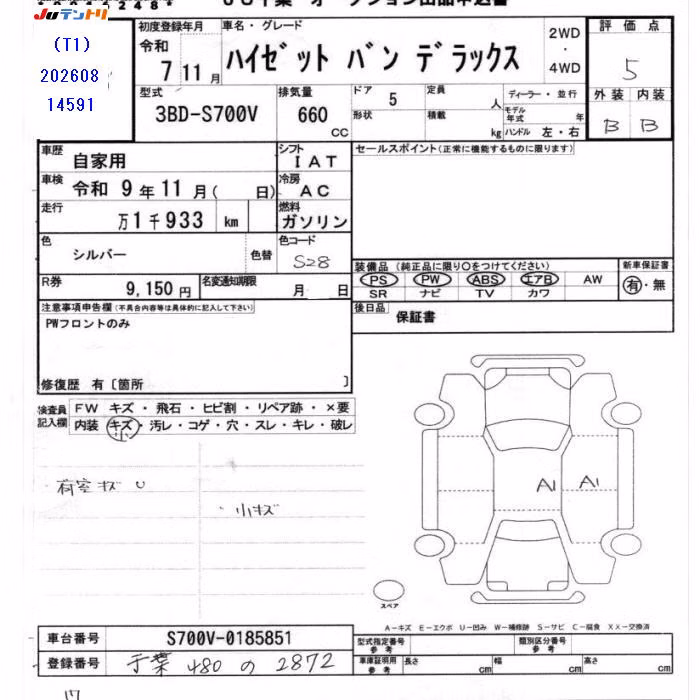 JUテントリ
(T1)
202608
14591
初度登録年月
令和
7 11 月
車名・グレード
ハイゼット バン デラックス
2WD
・
4WD
評価点
5
型式
3BD-S700V
排気量
660
CC
ドア
5
定員
人
形状
積載
kg
ディーラー・並行
モデル年式
年
ハンドル 左・右
外装 内装
B B
車歴
自家用
シフト
IAT
セールスポイント(正常に機能するものに限ります)
車検
令和 9 年 11 月( 日)
冷房
AC
走行
万 1 千 933 km
燃料
ガソリン
色
シルバー
色替
色コード
S28
装備品 (純正品に限り○をつけてください)
新車保証書
PS PW ABS エアB AW
SR ナビ TV カワ
有・無
R券
9,150 円
名変通知期限
月 日
後日品
保証書
注意事項申告欄(不具合内容等は具体的に記入して下さい)
PWフロントのみ
修復歴 有〔箇所 〕
検査員記入欄
FW キズ ・ 飛石 ・ ヒビ割 ・ リペア跡 ・ ×要
内装 キズ ・ 汚レ ・ コゲ ・ 穴 ・ スレ ・ キレ ・ 破レ
小
荷室キズ U
小キズ
A1 A1
スペア
A-キズ E-エクボ U-凹み W-補修跡 S-サビ C-腐食 XX-交換済
車台番号
S700V-0185851
型式指定番号
参考
類別区分番号
参考
登録番号
千葉 480 の 2872
車庫証明用
参考
長さ cm
幅 cm
高さ cm